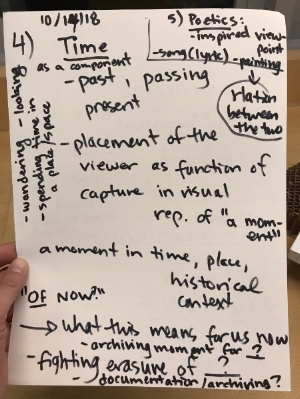 10/14/18
4) Time
as a component
- past, passing
present
- wandering - looking
- spending time in
a place/space
5) Poetics:
- inspired view-
point
- song (lyric) - painting
relation
between
the two
- placement of the
viewer as function of
capture in visual
rep. of "a mom-
ent"
a moment in time, place,
historical
context
"OF NOW?"
→ what this means for us now
- archiving moment for ?
- fighting erasure of ?
- documentation/archiving?